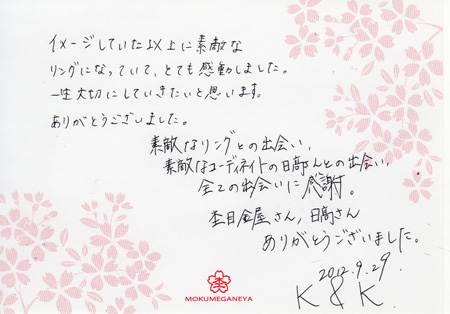 イメージしていた以上に素敵な
リングになっていて、とても感動しました。
一生大切にしていきたいと思います。
ありがとうございました。
素敵なリングとの出会い、
素敵なコーディネイトの日髙さんとの出会い、
全ての出会いに感謝。
杢目金屋さん、日髙さん
ありがとうございました。
2012.9.29.
K & K.
MOKUMEGANEYA